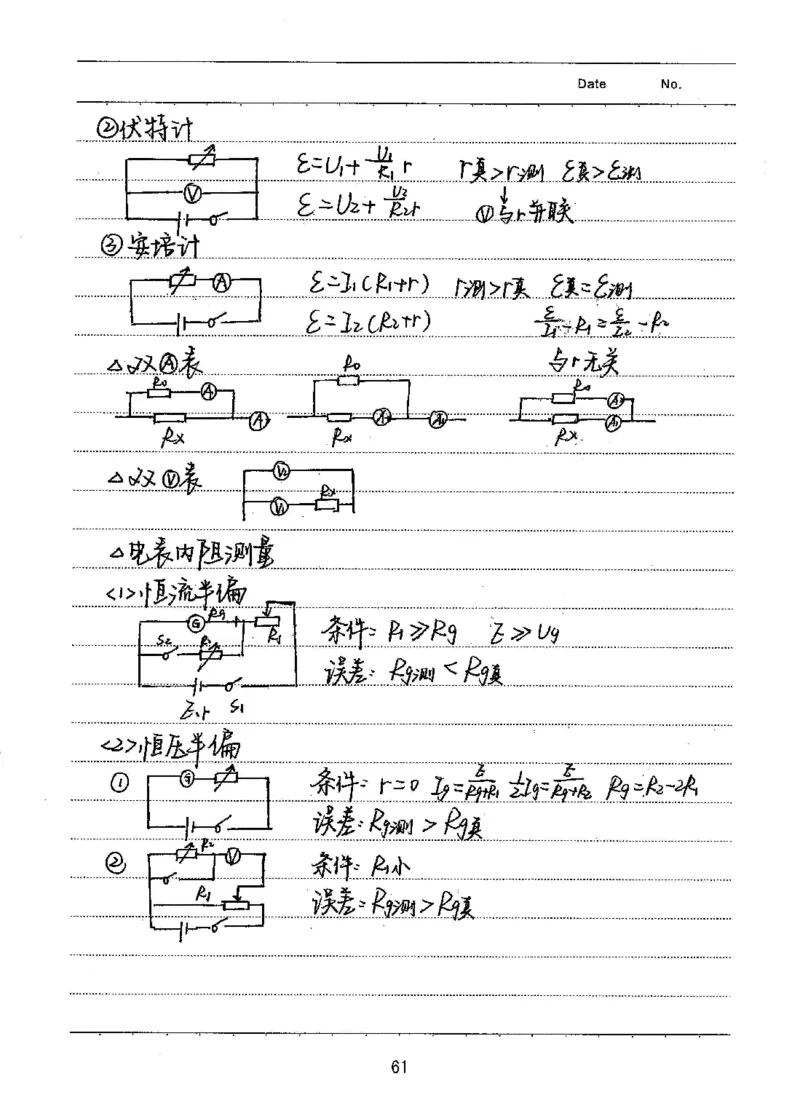 Date No.
②伏特计
V
ε=U₁+U₁/R₁ r r真>r测 ε真>ε测
ε=U₂+U₂/R₂ r Ⓥ与r并联
③安培计
A
ε=I₁(R₁+r) r测>r真 ε真=ε测
ε=I₂(R₂+r) ε/I₁-R₁=ε/I₂-R₂
△双Ⓐ表 与r无关
R₀ A Rx A
R₀ Rx A A
R₀ A Rx A
△双Ⓥ表
V₂ V₁ Rx
△电表内阻测量
<1>恒流半偏
G Rg R₁ S₂ R₂
条件: R₁≫Rg E≫Ug
误差: Rg测<Rg真
E.r S₁
<2>恒压半偏
① G
条件: r=0 Ig=E/Rg+R₁ ½Ig=E/Rg+R₂ Rg=R₂-2R₁
误差: Rg测>Rg真
② R₂ V R₁
条件: R₁小
误差: Rg测>Rg真
61